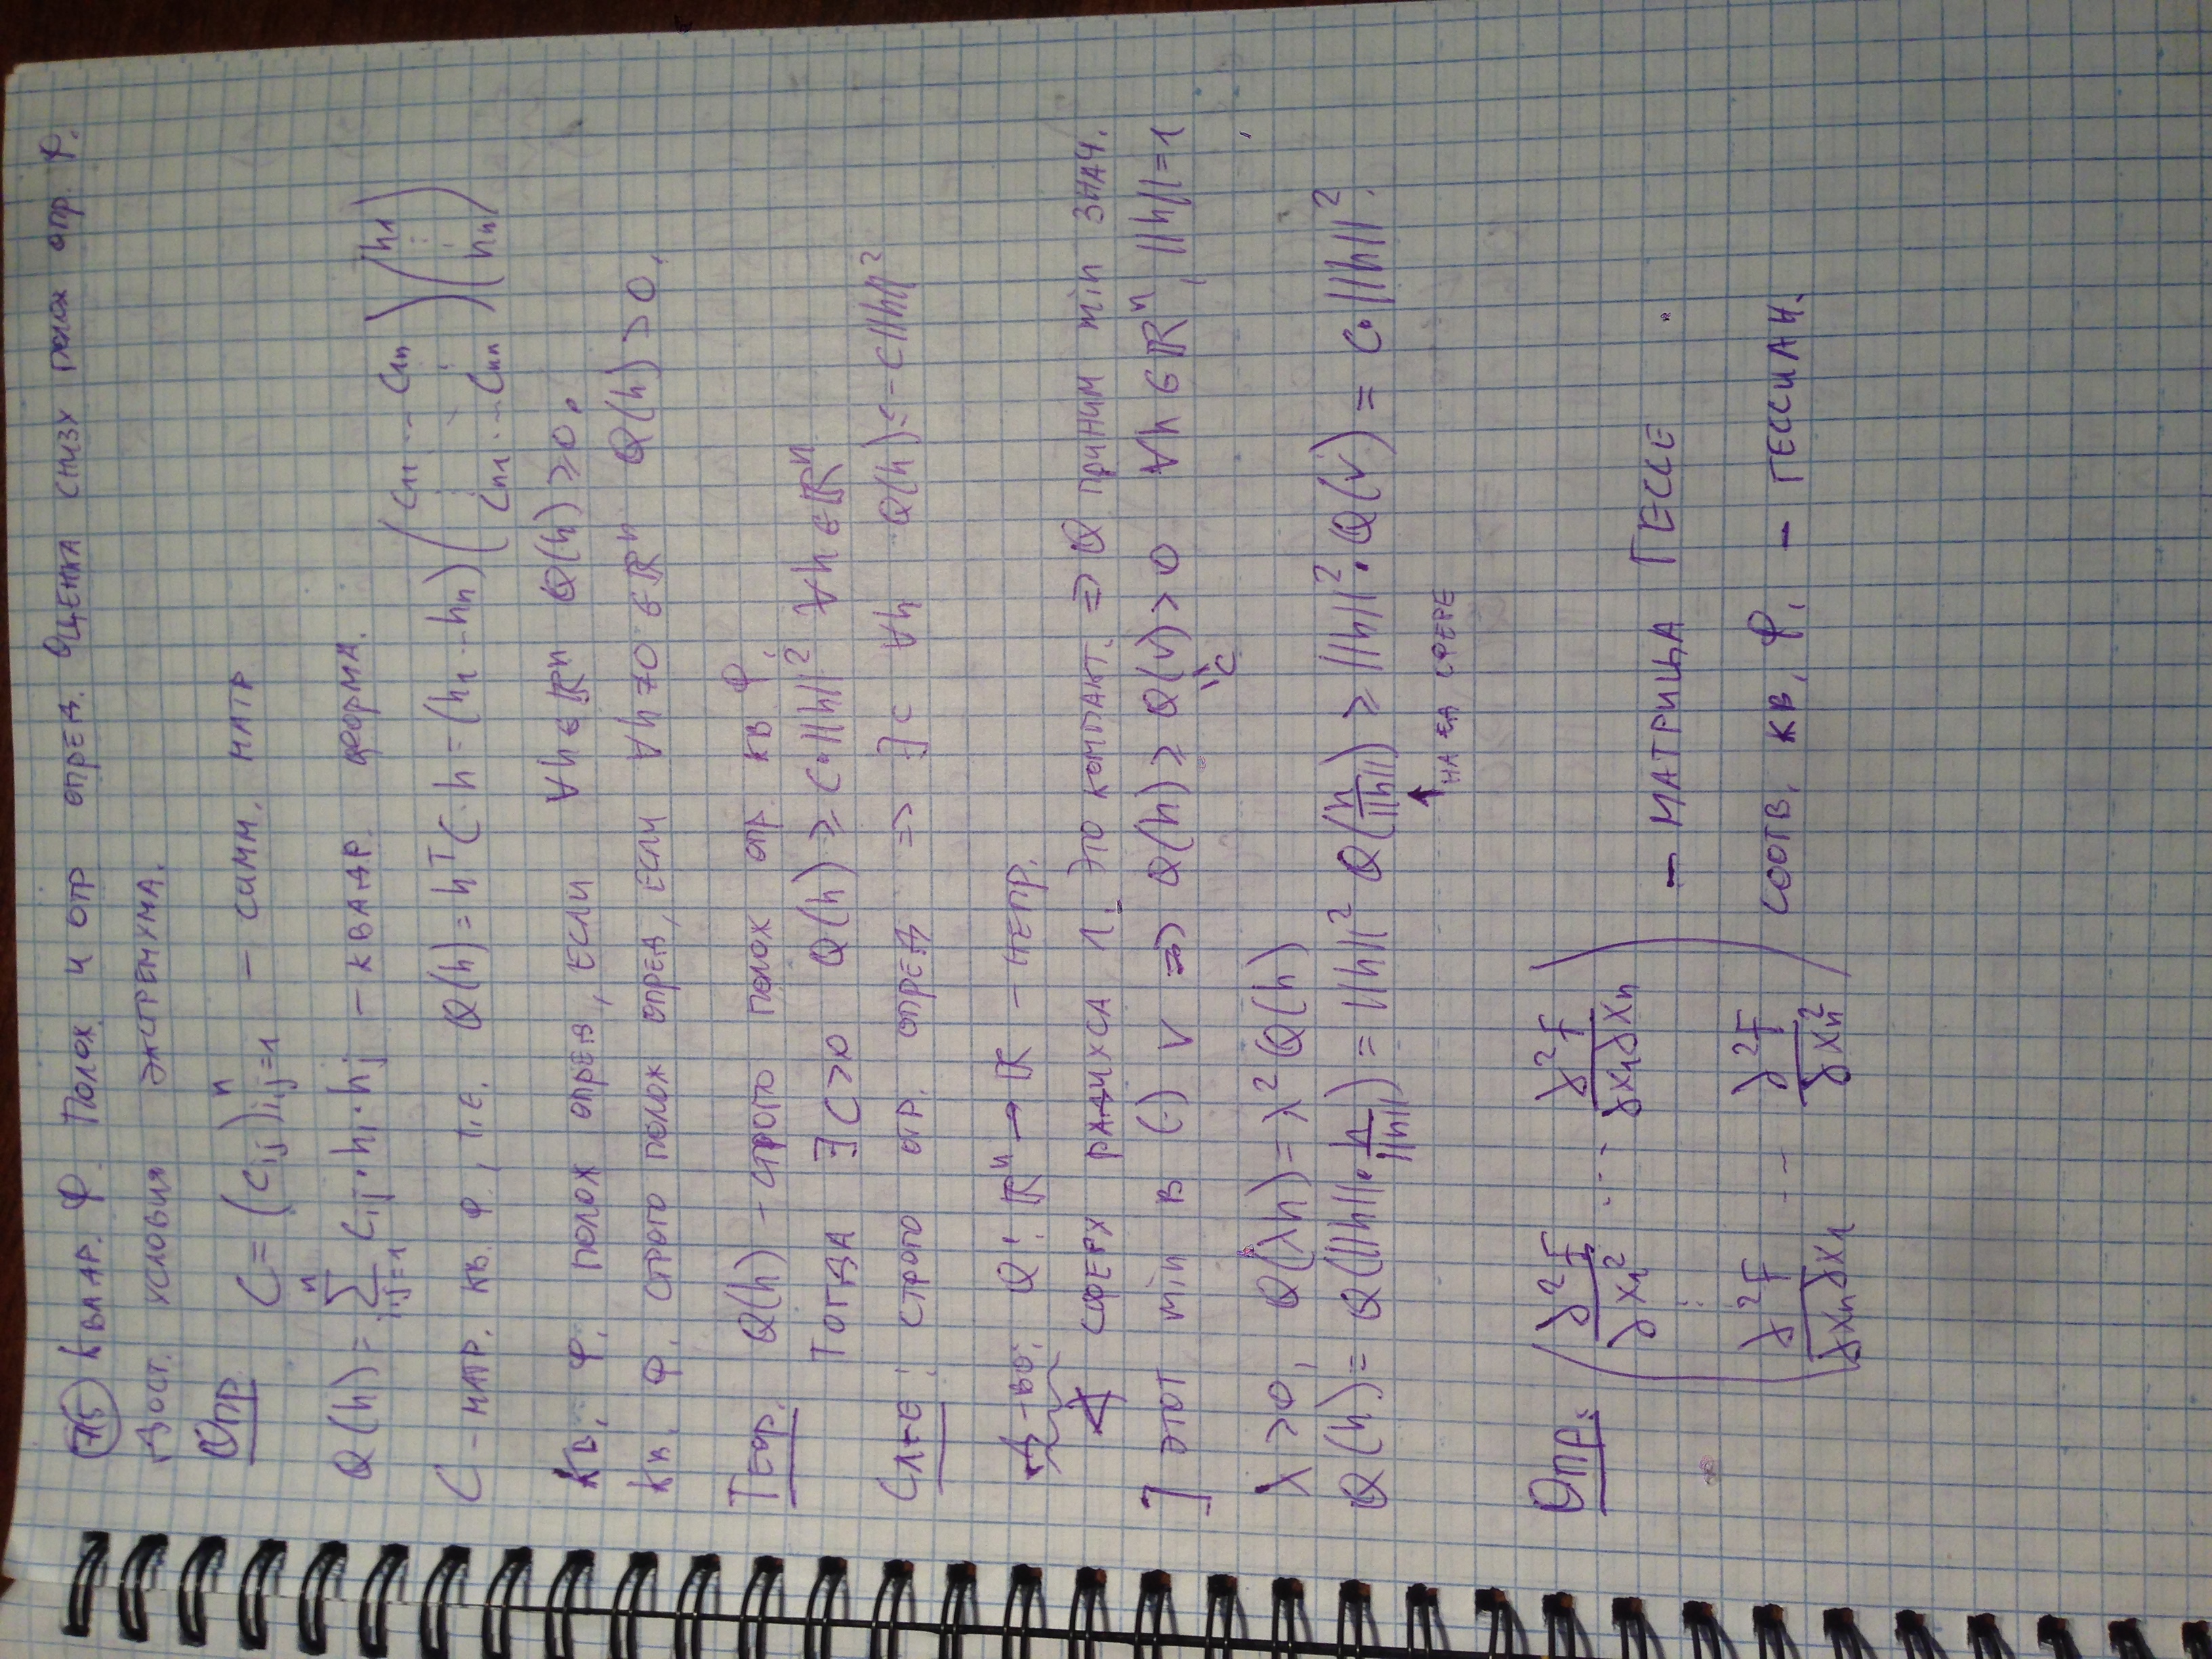 Квадр. Ф. Полож. и отр опред. Оценка снизу полож опр. Ф.
Дост. условия экстремума.
Опр C = (c_{ij})_{i,j=1}^n – симм. матр
Q(h) = \sum_{i,j=1}^n c_{ij}·h_i·h_j – квадр. форма.
C – матр. кв. ф., т.е. Q(h) = h^T C·h = (h_1 ... h_n) \begin{pmatrix} c_{11} ... c_{1n} \\ ⋮ ⋱ ⋮ \\ c_{n1} ... c_{nn} \end{pmatrix} \begin{pmatrix} h_1 \\ ⋮ \\ h_n \end{pmatrix}
Кв. Ф. полож опред, если ∀h∈ℝ^n Q(h) ≥ 0.
Кв. Ф. строго полож опред, если ∀h≠0 ∈ℝ^n Q(h) > 0.
Теор. Q(h) – строго полож опр. кв. Ф.
Тогда ∃ C>0 Q(h) ≥ C·||h||^2 ∀h∈ℝ^n
Сл-е: строго отр. опред => ∃ c ∀h Q(h) ≤ -c||h||^2
Д-во: Q: ℝ^n → ℝ – непр.
сферу радиуса 1. Это компакт. => Q приним min знач.
] этот min в (·) v => Q(h) ≥ Q(v) > 0 ∀h∈ℝ^n, ||h||=1
"c
λ > 0, Q(λh) = λ^2 Q(h)
Q(h) = Q(||h||·\frac{h}{||h||}) = ||h||^2 Q(\frac{h}{||h||}) ≥ ||h||^2·Q(v) = c·||h||^2.
↑ на ед сфере
Опр. \begin{pmatrix} \frac{∂^2F}{∂x_1^2} ... \frac{∂^2F}{∂x_1∂x_n} \\ ⋮ \\ \frac{∂^2F}{∂x_n∂x_1} ... \frac{∂^2F}{∂x_n^2} \end{pmatrix} – матрица Гессе
соотв. кв. Ф. – гессиан.